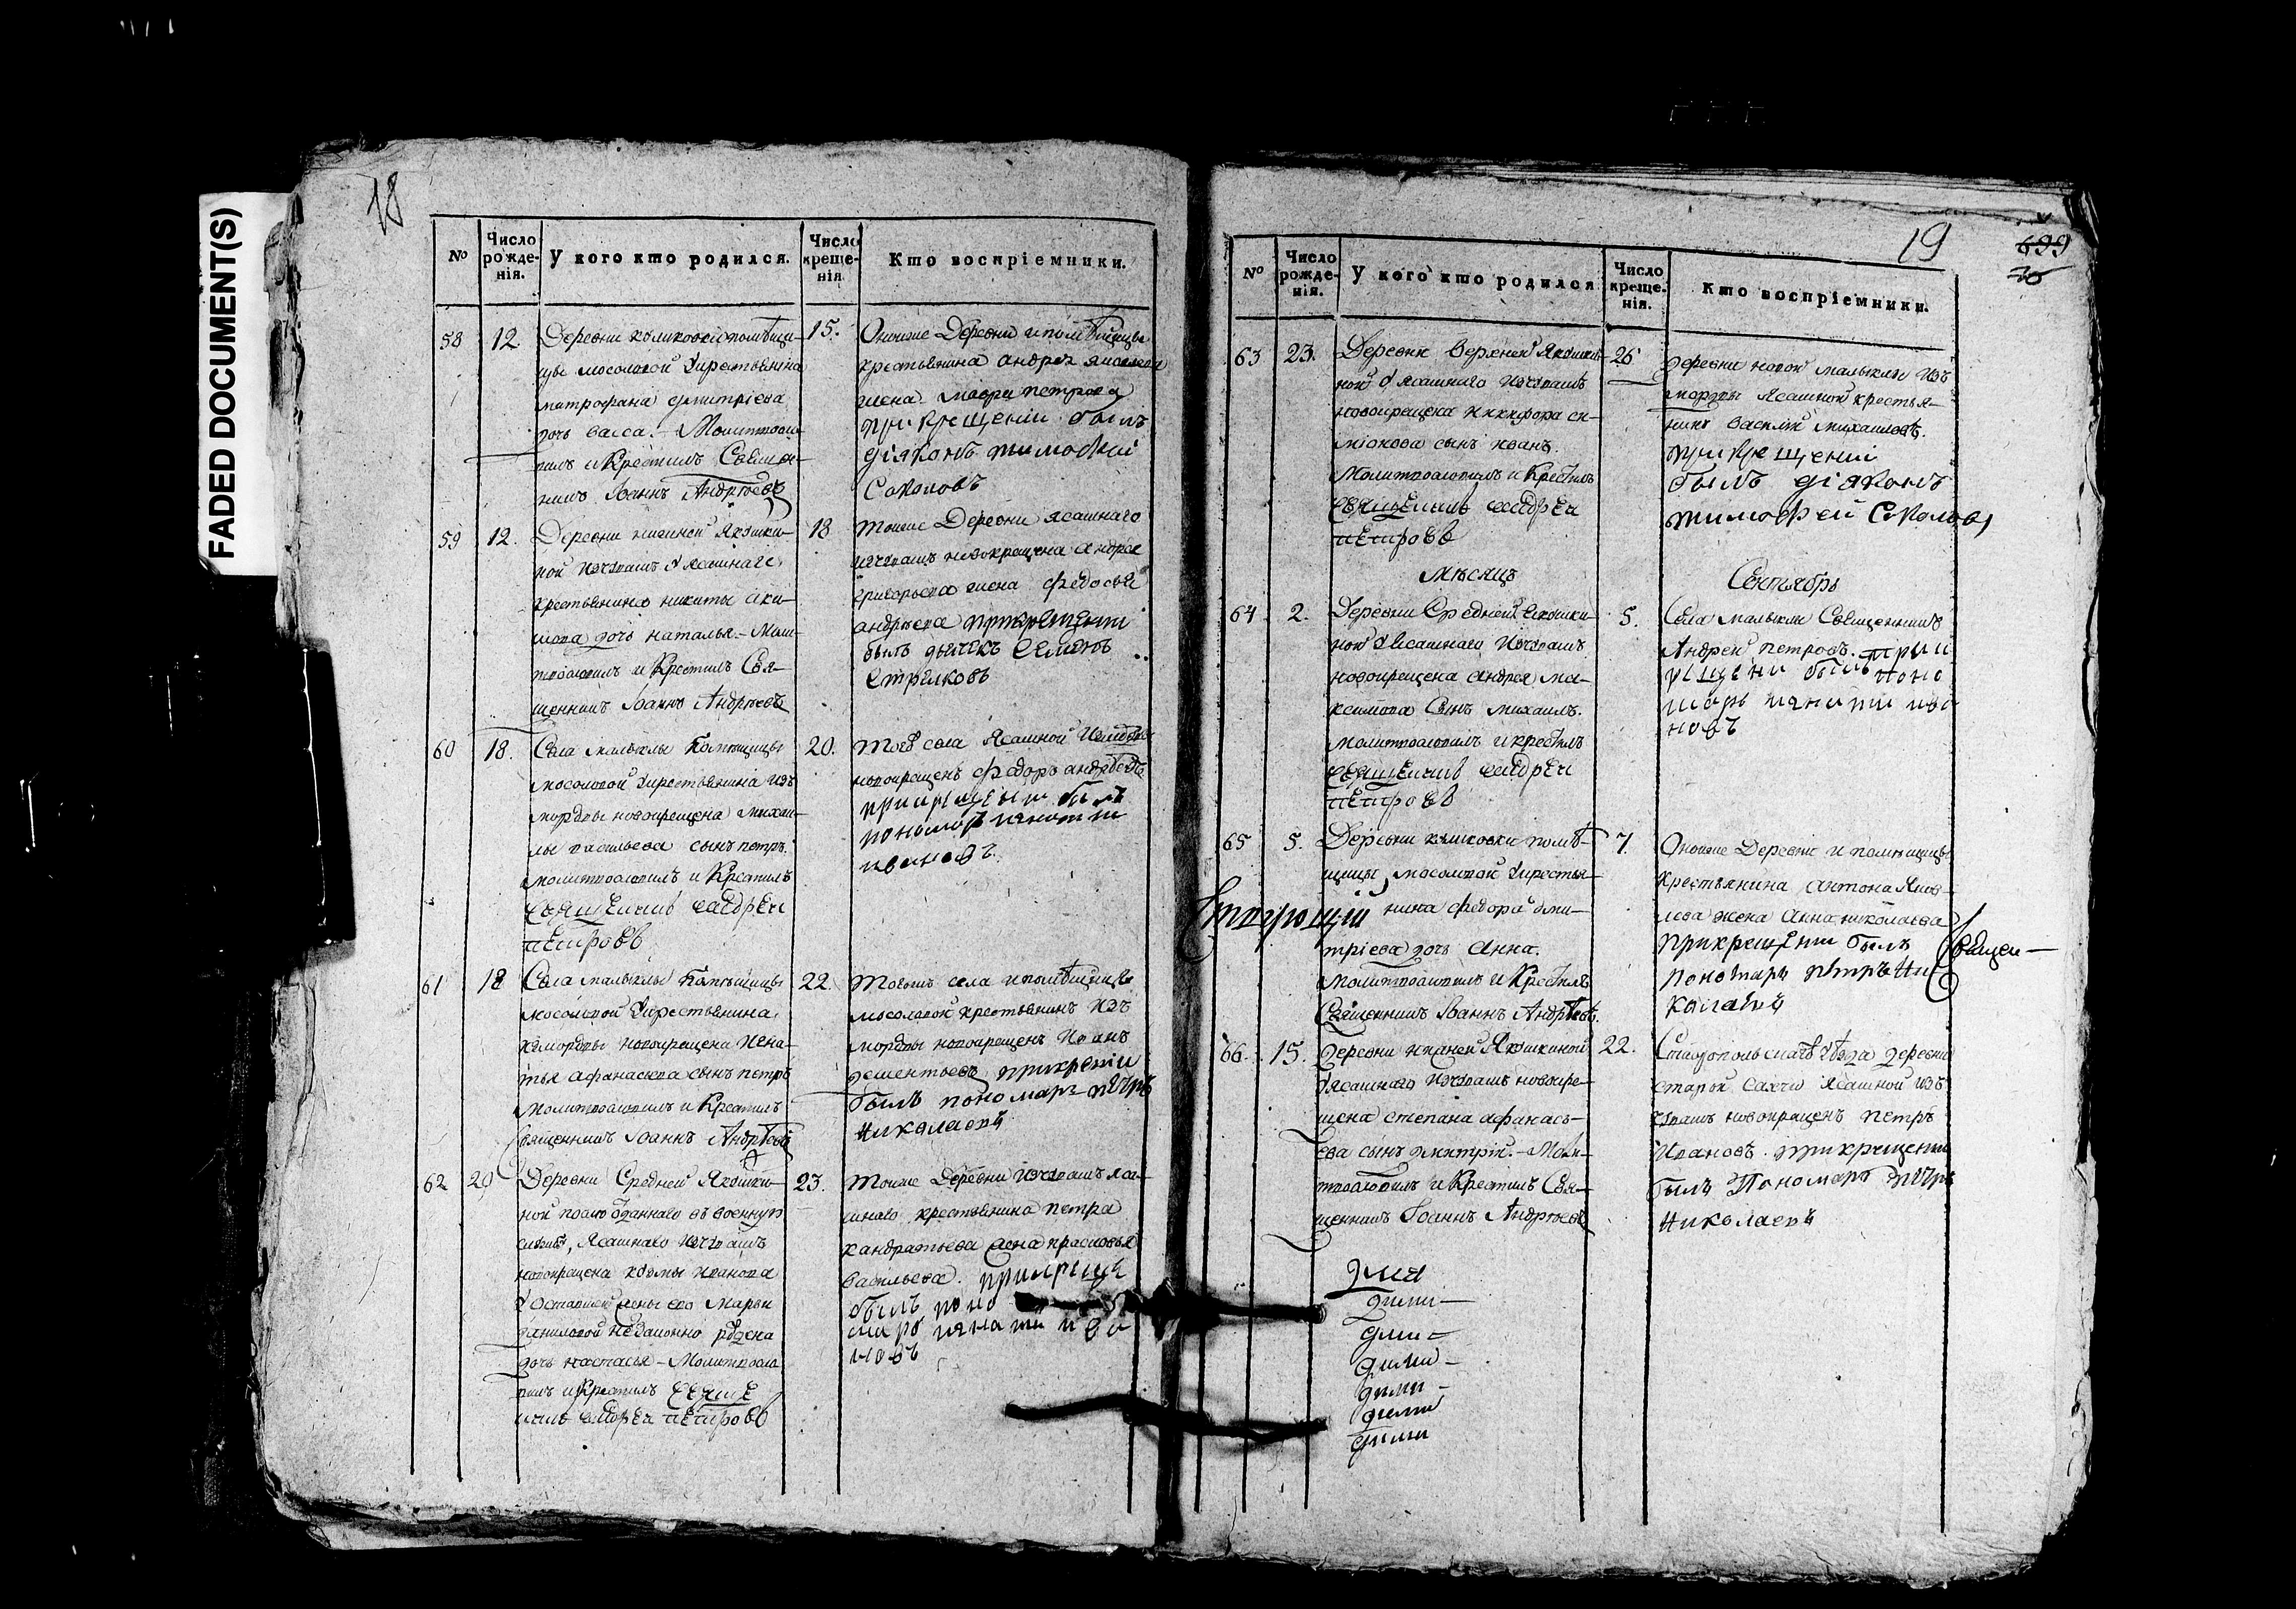 FADED DOCUMENT(S)
18
№
Число рожденія.
У кого кто родился.
Число крещенія
Кто воспріемники.
58
12.
Деревни куликовки помѣщи-
цы мосоловой Укрестьянина
митрофана дмитріева
дочь васса. – Молитвосло-
вилъ и Крестилъ Священ-
никъ Іоаннъ Андрѣевъ
15.
Оныеже Деревни и помѣщицы
крестьянина андрея
жена мавра петрова
при крещеніи былъ
діяконъ тимофей
Соколовъ
59
12.
Деревни нижней Якушки-
ной изчувашъ Уясашнаго
крестьянина никиты аки-
мова дочь наталья. – Моли-
твословилъ и Крестилъ Свя-
щенникъ Іоаннъ Андрѣевъ
18
тоеже Деревни ясашнаго
изчувашъ новокрещена андрея
григорьева жена федосья
андреева прикрещении
былъ дьячекъ Семенъ
Стрелковъ
60
18.
Села малыклы Упомѣщицы
мосоловой Укрестьянина изъ
мордвы новокрещена михаи-
лы васильева сынъ петръ.
молитвословилъ и Крестилъ
священикъ андреи
петровъ
20.
тогоже села Ясашной
новокрещенъ федоръ андреевъ
прикрещении былъ
пономарь игнатии
ивановъ.
61
18
Села малыклы Упомѣщицы
мосоловой Укрестьянина
измордвы новокрещена игна-
тья афанасьева сынъ петръ
молитвословилъ и Крестилъ
Священникъ Іоаннъ Андрѣевъ
22.
тогожъ села и помѣщицы
мосоловой крестьянинъ изъ
мордвы новокрещенъ Иванъ
дементьевъ
былъ пономарь петръ
николаевъ
62
20
Деревни Средней Якушки-
ной послѣ отданнаго въ военную
службу, Ясашнаго изчувашъ
новокрещена кузмы иванова
Уоставшей жены его Марьи
даниловой незаконно рождена
дочь настасья – Молитвосло-
вилъ и Крестилъ свяще
никъ андреи петровъ
23.
тоеже Деревни изчувашъ яса-
шнаго крестьянина петра
кандратьева жена прасковья
васильева. прикреще
былъ поно
марь игнати ива
новъ
19
699
№
Число рожденія.
У кого кто родился
Число крещенія.
Кто воспріемники.
63
23.
Деревни Верхней Якушки-
ной Уясашнаго изчувашъ
новокрещена никифора си-
мионова сынъ иванъ.
Молитвословилъ и Крестилъ
священикъ андреи
петровъ
26
Деревни новой малыклы изъ
мордвы Ясашной крестья-
нинъ василей михаиловъ.
при крещеніи
былъ діяконъ
тимофей Соколовъ
Мѣсяцъ
Сентябрь
64
2.
Деревни Средней Якушки-
ной Уясашнаго изчувашъ
новокрещена андрея ма-
ксимова Сынъ михаилъ.
молитвословилъ и крестилъ
священикъ андреи
петровъ
5.
Села малыклы Священникъ
Андрей петровъ. при к
рещени былъ поно
марь игнатии ива
новъ
65
5.
Деревни куликовки помѣ-
щицы мосоловой Укрестья-
нина федора дми-
тріева дочь Анна.
молитвословилъ и Крестилъ
Священникъ Іоаннъ Андрѣевъ.
7.
Оныеже Деревни и помѣщицы
крестьянина антона Яков-
лева жена Анна николаева
прикрещении былъ
пономарь петръ Ни
колаевъ
Священ-
66.
15.
деревни нижней Якушкиной
Уясашнаго изчувашъ новокре-
щена степана афанась-
ева сынъ дмитрій. – Моли-
твословилъ и Крестилъ Свя-
щенникъ Іоаннъ Андрѣевъ
22.
Ставропольскаго уѣзда деревни
старой сахчи ясашной изъ
чувашъ новокрещенъ петръ
Ивановъ. прикрещении
былъ Пономарь петръ
николаевъ